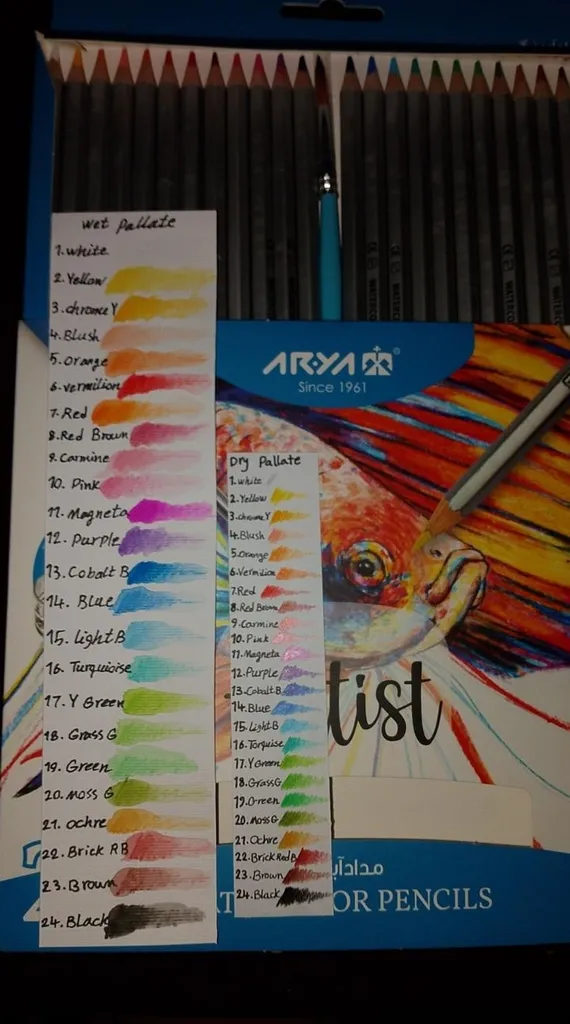 wet Pallate
1. white
2. Yellow
3. chromeY
4. Blush
5. Orange
6. vermilion
7. Red
8. Red Brown
9. Carmine
10. Pink
11. Magneta
12. Purple
13. Cobalt B
14. Blue
15. light B
16. Turquoise
17. Y Green
18. Grass G
19. Green
20. Moss G
21. Ochre
22. Brick R B
23. Brown
24. Black
ARYA®
Since 1961
Dry Pallate
1. white
2. Yellow
3. chromeY
4. Blush
5. Orange
6. Vermilion
7. Red
8. Red Brown
9. Carmine
10. Pink
11. Magneta
12. Purple
13. Cobalt B.
14. Blue
15. Light B
16. Torquise
17. Y Green
18. Grass G
19. Green
20. Moss G
21. Ochre
22. Brick Red B
23. Brown
24. Black
tist
مدادآب
OR PENCILS